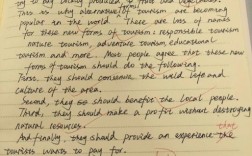 try to buy locally produced, fruit and vegetables.
This is why alternative tourism are becoming
popular in the world. There are lots of names
for these new forms of tourism: responsible tourism
nature tourism, adventure tourism, educational
tourism and more. Most people agree that these new
forms of tourism should do the following.
First, they should conserve the wild life and
culture of the area.
Second, they so should benefit the local people.
Third, they should make a profit without destroying
natural resources.
And finally, they should provide an experience
tourists wants to pay for.